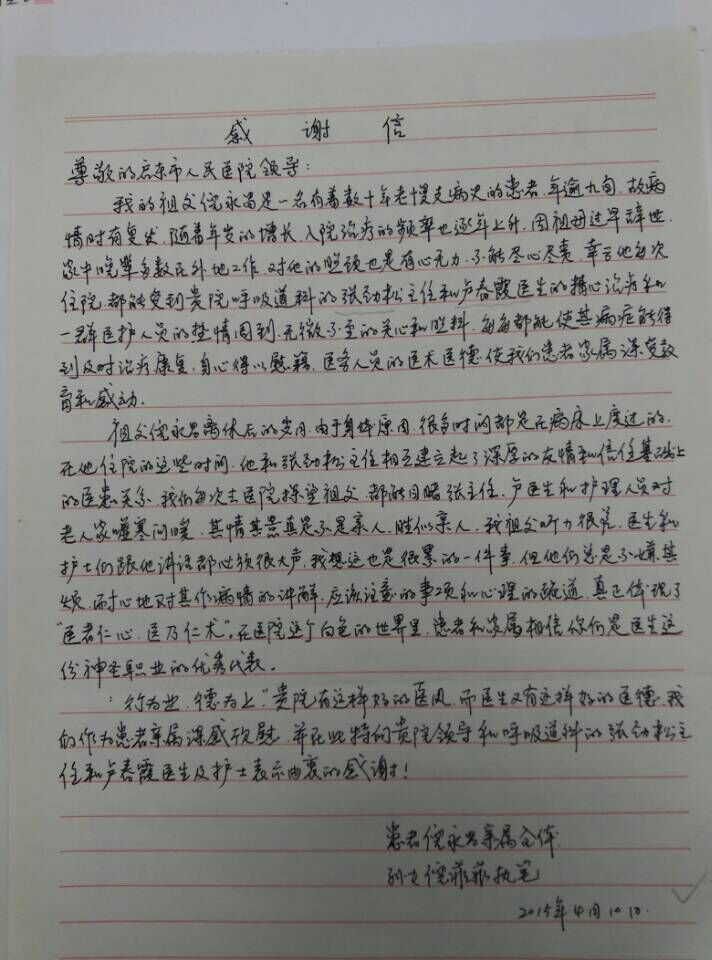 感谢信
尊敬的启东市人民医院领导：
我的祖父倪永昌是一名有着数十年老慢支病史的患者，年逾九旬，故病
情时有复发，随着年岁的增长，入院治疗的频率也逐年上升，因祖母过早辞世，
家中晚辈多数在外地工作，对他的照顾也是有心无力，不能尽心尽责，幸亏他每次
住院，都能受到贵院呼吸道科的张劲松主任和卢春霞医生的精心治疗和
一群医护人员的热情周到、无微不至的关心和照料，每每都能使其病症能得
到及时治疗康复，身心得以慰籍，医务人员的医术医德，使我们患者家属深受教
育和感动。
祖父倪永昌离休后的岁月，由于身体原因，很多时间都是在病床上度过的，
在他住院的这些时间，他和张劲松主任相互建立起了深厚的友情和信任基础上
的医患关系，我们每次去医院探望祖父，都能目睹张主任、卢医生和护理人员对
老人家嘘寒问暖，其情其景真是不是亲人，胜似亲人，我祖父听力很差，医生和
护士们跟他讲话都必须很大声，我想这也是很累的一件事，但他们总是不嫌其
烦，耐心地对其作病情的讲解，应该注意的事项和心理的疏道，真正体现了
“医者仁心，医乃仁术”。在医院这个白色的世界里，患者和家属相信你们是医生这
份神圣职业的优秀代表。
“行为业，德为上”贵院有这样好的医风，而医生又有这样好的医德，我
们作为患者亲属深感欣慰，并在此特向贵院领导和呼吸道科的张劲松主
任和卢春霞医生及护士表示由衷的感谢！
患者倪永昌亲属全体
孙女倪菲菲执笔
2015年4月10日.